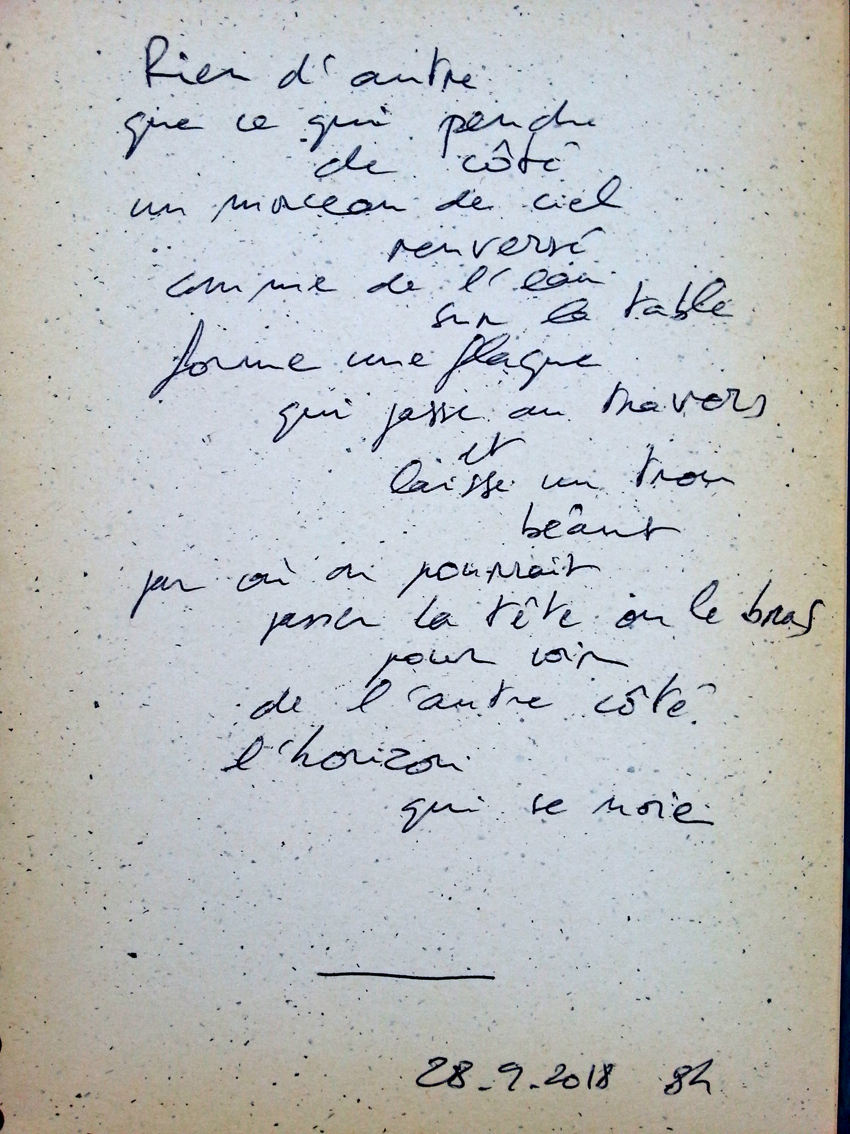 Rien d'autre
que ce qui penche
de côté
un morceau de ciel
renversé
comme de l'eau
sur la table
forme une flaque
qui passe au travers
et
laisse un trou
béant
par où on pourrait
passer la tête ou le bras
pour voir
de l'autre côté
l'horizon
qui se noie
28-9-2018 8h